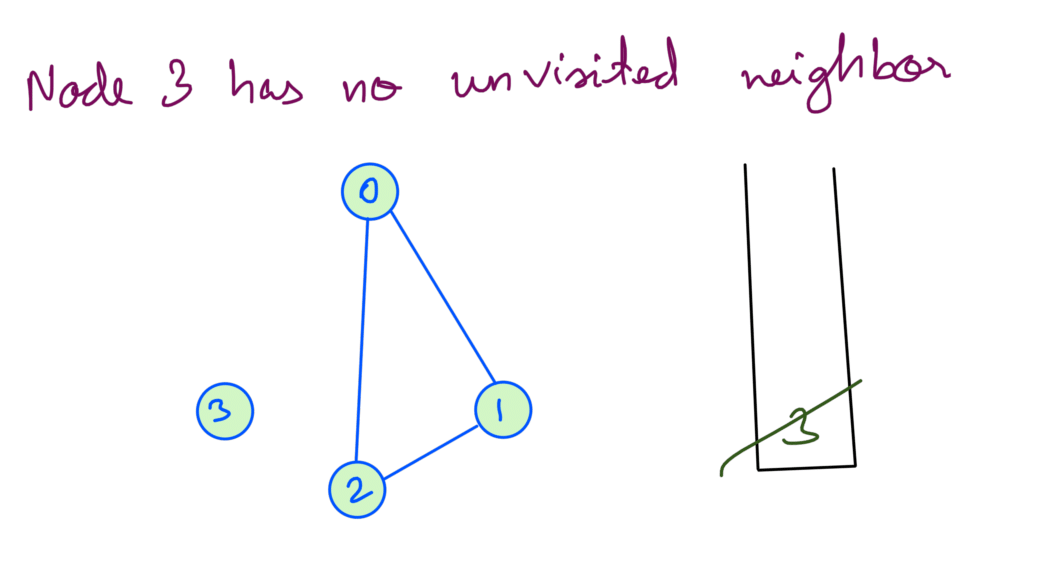 Node 3 has no unvisited neighbor
0
3
1
3
2